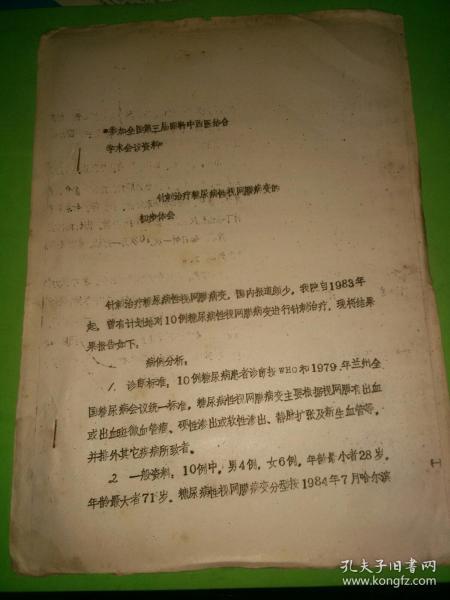 *参加全国第三届眼科中西医结合
学术会议资料*
针刺治疗糖尿病性视网膜病变的
初步体会
针刺治疗糖尿病性视网膜病变，国内报道颇少。我院自1983年
起，曾有计划地对10例糖尿病性视网膜病变进行针刺治疗，现将结果
果报告如下。
病例分析：
1、诊断标准，10例糖尿病患者诊断按WHO和1979.年兰州全
国糖尿病会议统一标准，糖尿病性视网膜病变主要根据视网膜有出血
或出血斑微血管瘤、硬性渗出或软性渗出、静脉扩张及新生血管等，
并排外其它疾病所致者。
2 一般资料：10例中，男4例，女6例，年龄最小者28岁，
年龄最大者71岁。糖尿病性视网膜病变分型按1984年7月哈尔滨
孔夫子旧书网
www.kongfz.com